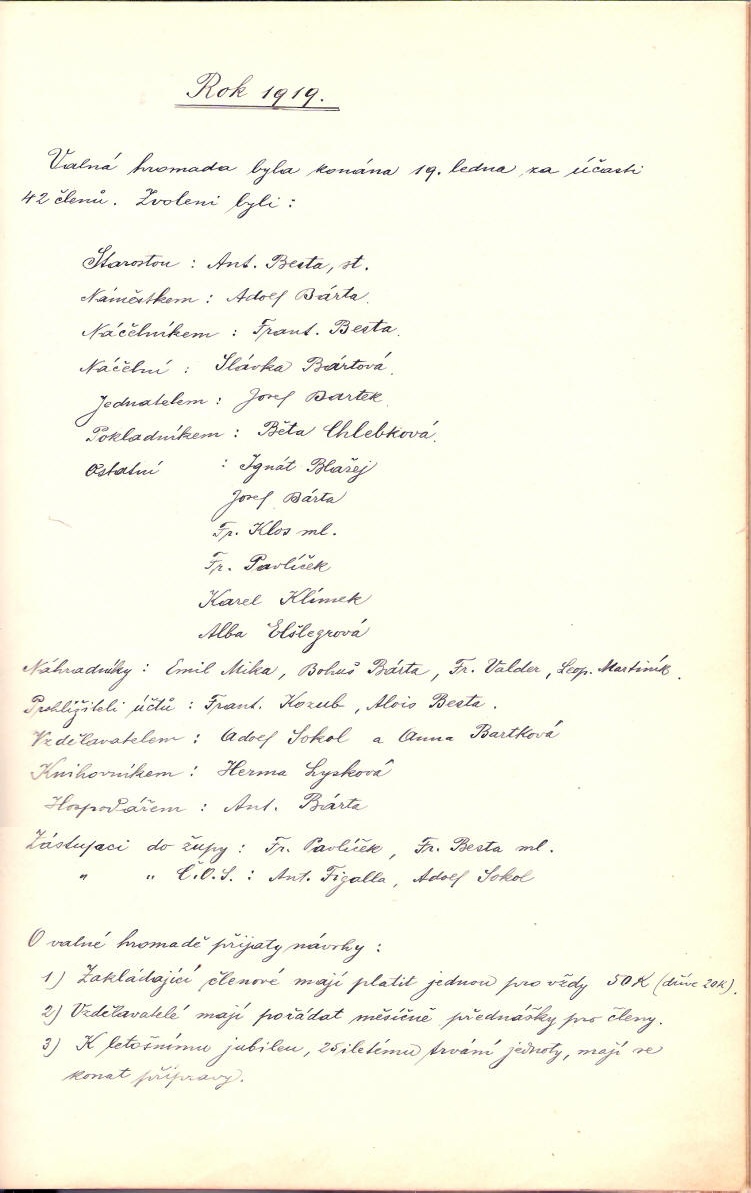 Rok 1919.
Valná hromada byla konána 19. ledna za účasti
42 členů. Zvoleni byli :
Starostou : Ant. Besta, st.
Náměstkem : Adolf Bárta.
Náčelníkem : Frant. Besta.
Náčelní : Slávka Bártová.
Jednatelem : Josef Bartek.
Pokladníkem : Běta Chlebková.
Ostatní : Ignát Blažej
Josef Bárta
Fr. Klos ml.
Fr. Pavlíček
Karel Klimek
Alba Elšlegrová
Náhradníky : Emil Mika, Bohuš Bárta, Fr. Valder, Leop. Martiník.
Prohlížiteli účtů : Frant. Kozub, Alois Besta.
Vzdělavatelem : Adolf Sokol a Anna Bartková
Knihovníkem : Herma Lysková
Hospodářem : Ant. Bárta
Zástupci do župy : Fr. Pavlíček, Fr. Besta ml.
„ „ Č.O.S. : Ant. Figalla, Adolf Sokol
O valné hromadě přijaty návrhy :
1) Zakládající členové mají platit jednou pro vždy 50 K (dříve 20 K).
2) Vzdělavatelé mají pořádat měsíčně přednášky pro členy.
3) K letošnímu jubileu, 25iletému trvání jednoty, mají se
konat přípravy.